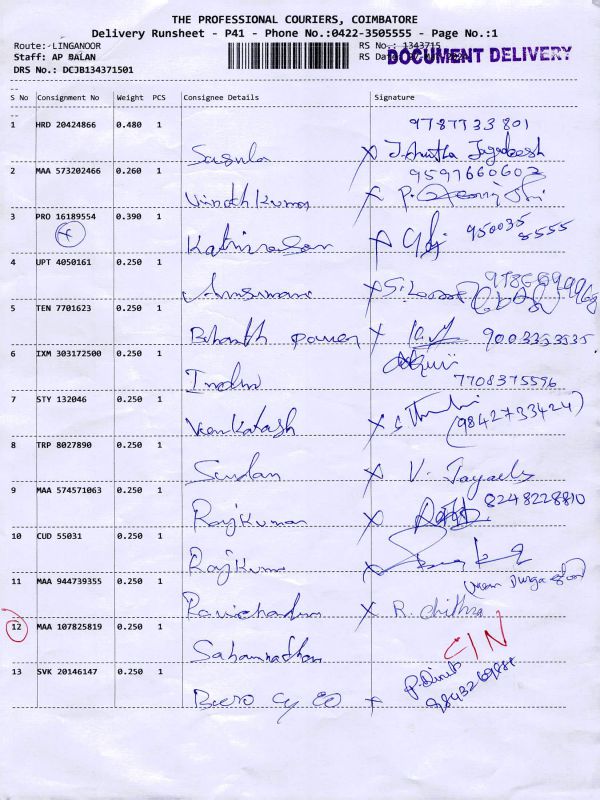 THE PROFESSIONAL COURIERS, COIMBATORE
Delivery Runsheet - P41 - Phone No.:0422-3505555 - Page No.:1
Route: LINGANOOR RS No.: 1343715
Staff: AP BALAN RS Da DOCUMENT DELIVERY
DRS No.: DCJB134371501
S No Consignment No Weight PCS Consignee Details Signature
1 HRD 20424866 0.480 1 9787733801
Sasula X J. Anitha Jagadeesh
2 MAA 573202466 0.260 1 9597660602
Vinoth Kumar X P.
3 PRO 16189554 0.390 1 950035
X 8555
4 UPT 4050161 0.250 1
X
5 TEN 7701623 0.250 1
Bharath power X 9003353535
6 IXM 303172500 0.250 1
Indru 7708375596
7 STY 132046 0.250 1
Venkatash X (9842733424)
8 TRP 8027890 0.250 1
X V. Jayaely
9 MAA 574571063 0.250 1 8248228810
Rajkumar X
10 CUD 55031 0.250 1
Rajkumar X
11 MAA 944739355 0.250 1 Durga
Ravichadran X R. Chithra
12 MAA 107825819 0.250 1 IN
13 SVK 20146147 0.250 1 P. Dinesh
X